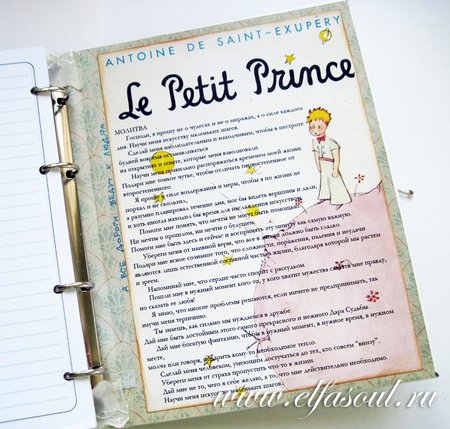 ANTOINE DE SAINT-EXUPÉRY
Le Petit Prince
МОЛИТВА
Господи, я прошу не о чудесах и не о миражах, а о силе каждого
дня. Научи меня искусству маленьких шагов.
Сделай меня наблюдательным и находчивым, чтобы в пестроте
будней вовремя останавливаться
на открытиях и опыте, которые меня взволновали.
Научи меня правильно распоряжаться временем моей жизни
Подари мне тонкое чутье, чтобы отличать первостепенное от
второстепенного.
Я прошу о силе воздержания и меры, чтобы я по жизни не
порхал и не скользил,
а разумно планировал течение дня, мог бы видеть вершины и дали,
и хоть иногда находил бы время для наслаждения искусством.
Помоги мне понять, что мечты не могут быть помощью.
Ни мечты о прошлом, ни мечты о будущем.
Помоги мне быть здесь и сейчас и воспринять эту минуту как самую важную.
Убереги меня от наивной веры, что все в жизни должно быть гладко.
Подари мне ясное сознание того, что сложности, поражения, падения и неудачи
являются лишь естественной составной частью жизни, благодаря которой мы растем
и зреем.
Напоминай мне, что сердце часто спорит с рассудком.
Пошли мне в нужный момент кого-то, у кого хватит мужества сказать мне правду,
но сказать ее любя!
Я знаю, что многие проблемы решаются, если ничего не предпринимать, так
научи меня терпению.
Ты знаешь, как сильно мы нуждаемся в дружбе.
Дай мне быть достойным этого самого прекрасного и нежного Дара Судьбы.
Дай мне богатую фантазию, чтобы в нужный момент, в нужное время, в нужном
месте,
молча или говоря, подарить кому-то необходимое тепло.
Сделай меня человеком, умеющим достучаться до тех, кто совсем "внизу".
Убереги меня от страха пропустить что-то в жизни.
Дай мне не то, чего я себе желаю, а то, что мне действительно необходимо.
Научи меня искусству маленьких шагов.
А ВСЕ ДОРОГИ ВЕДУТ К ЛЮДЯМ
www.elfasoul.ru